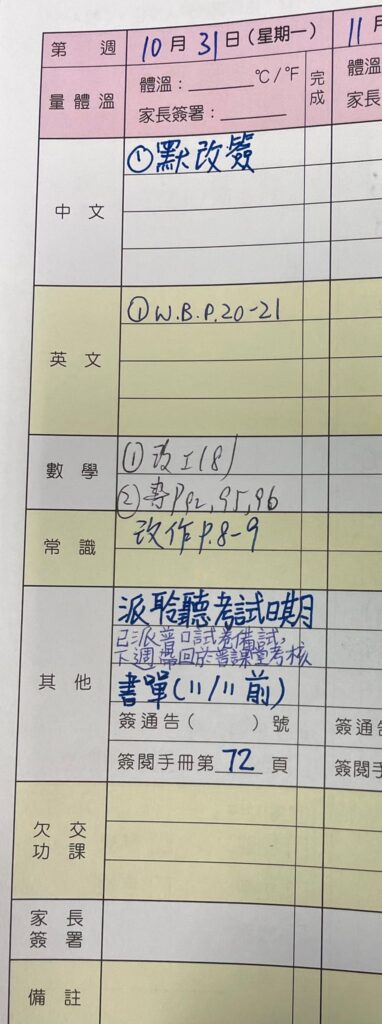 第 週 10月31日(星期一) 11月
量體溫 體溫:______°C/°F 完成 體溫
家長簽署:______ 家長
中文 ①默改簽
英文 ①W.B.P.20-21
數學 ①改工(8)
②書P92,95,96
常識 改作P.8-9
其他 派聆聽考試日期
已派普口試卷備試,
下週帶回於普課堂考核
書單(11/11前)
簽通告( )號 簽通告
簽閱手冊第 72 頁 簽閱手
欠交功課
家長簽署
備註